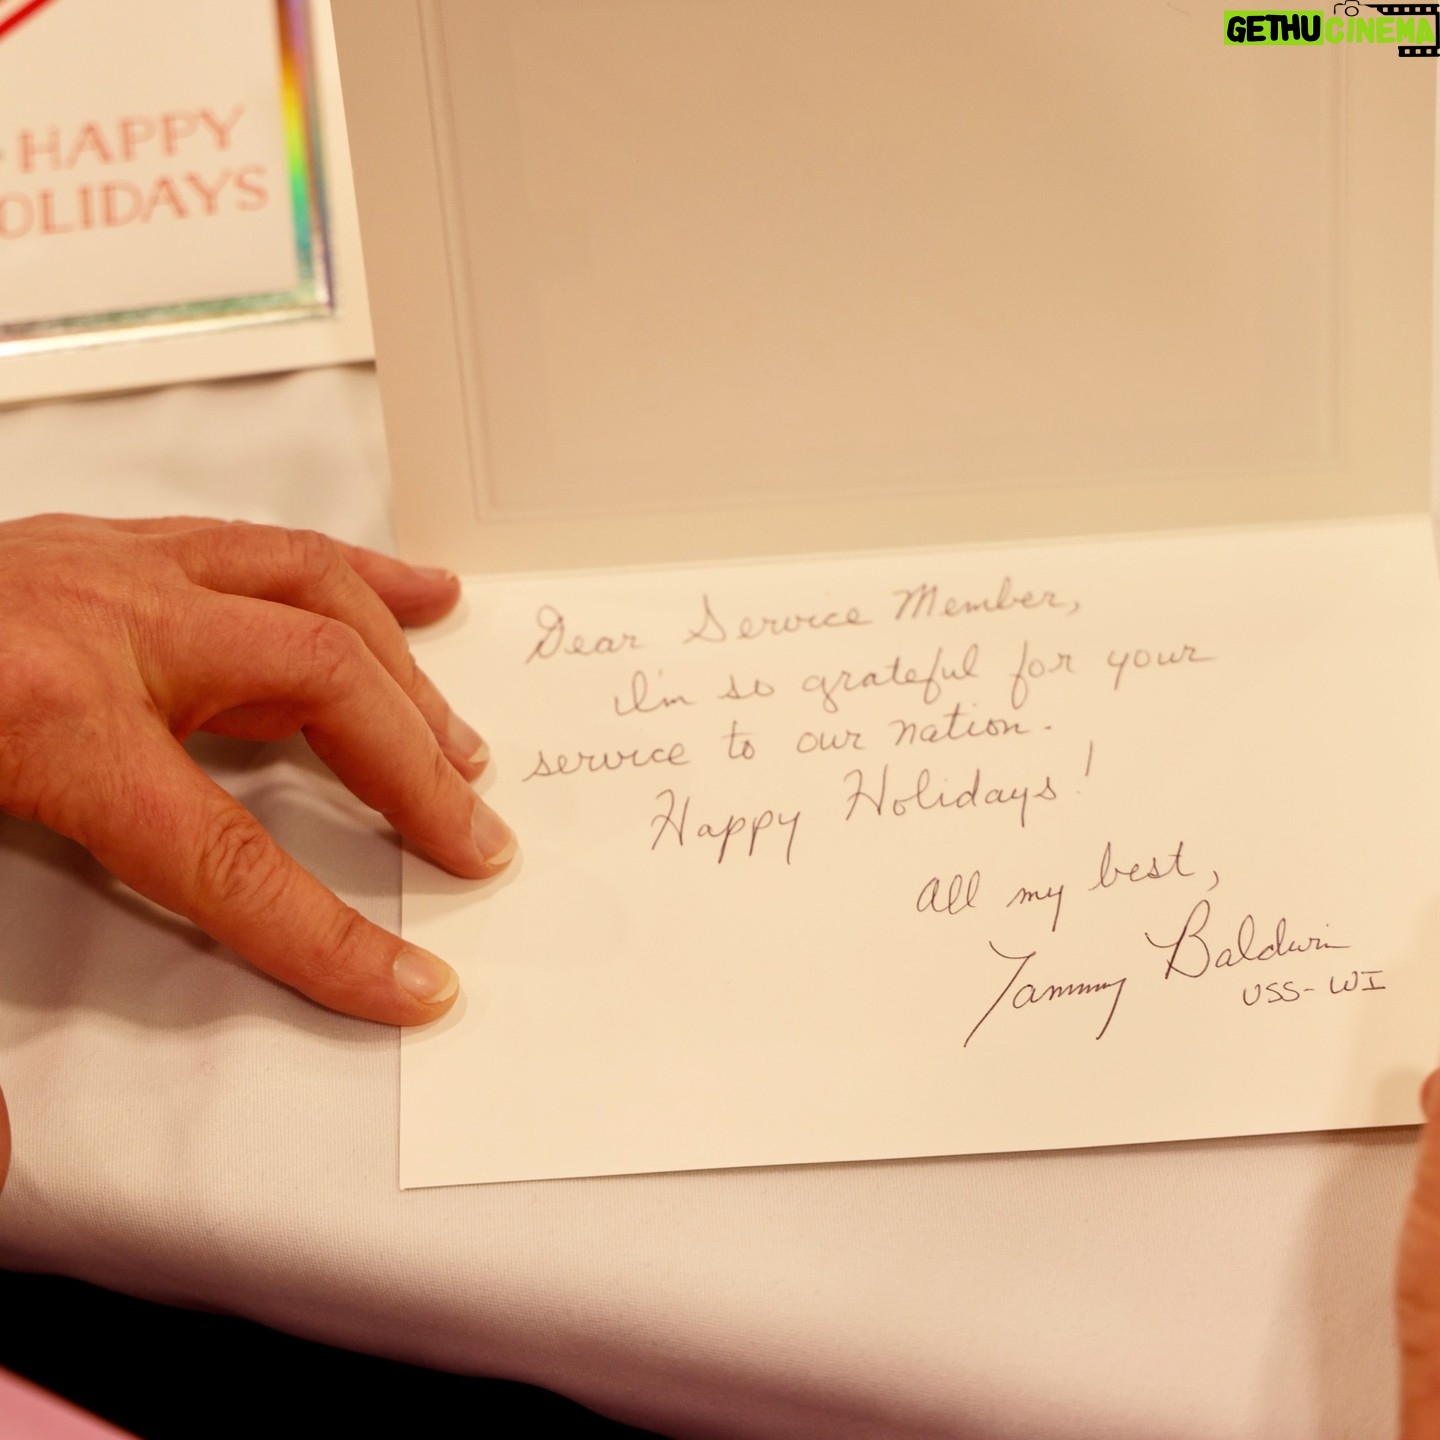 GETHU CINEMA
HAPPY
OLIDAYS
Dear Service Member,
I'm so grateful for your
service to our nation.
Happy Holidays!
All my best,
Tammy Baldwin
USS-WI